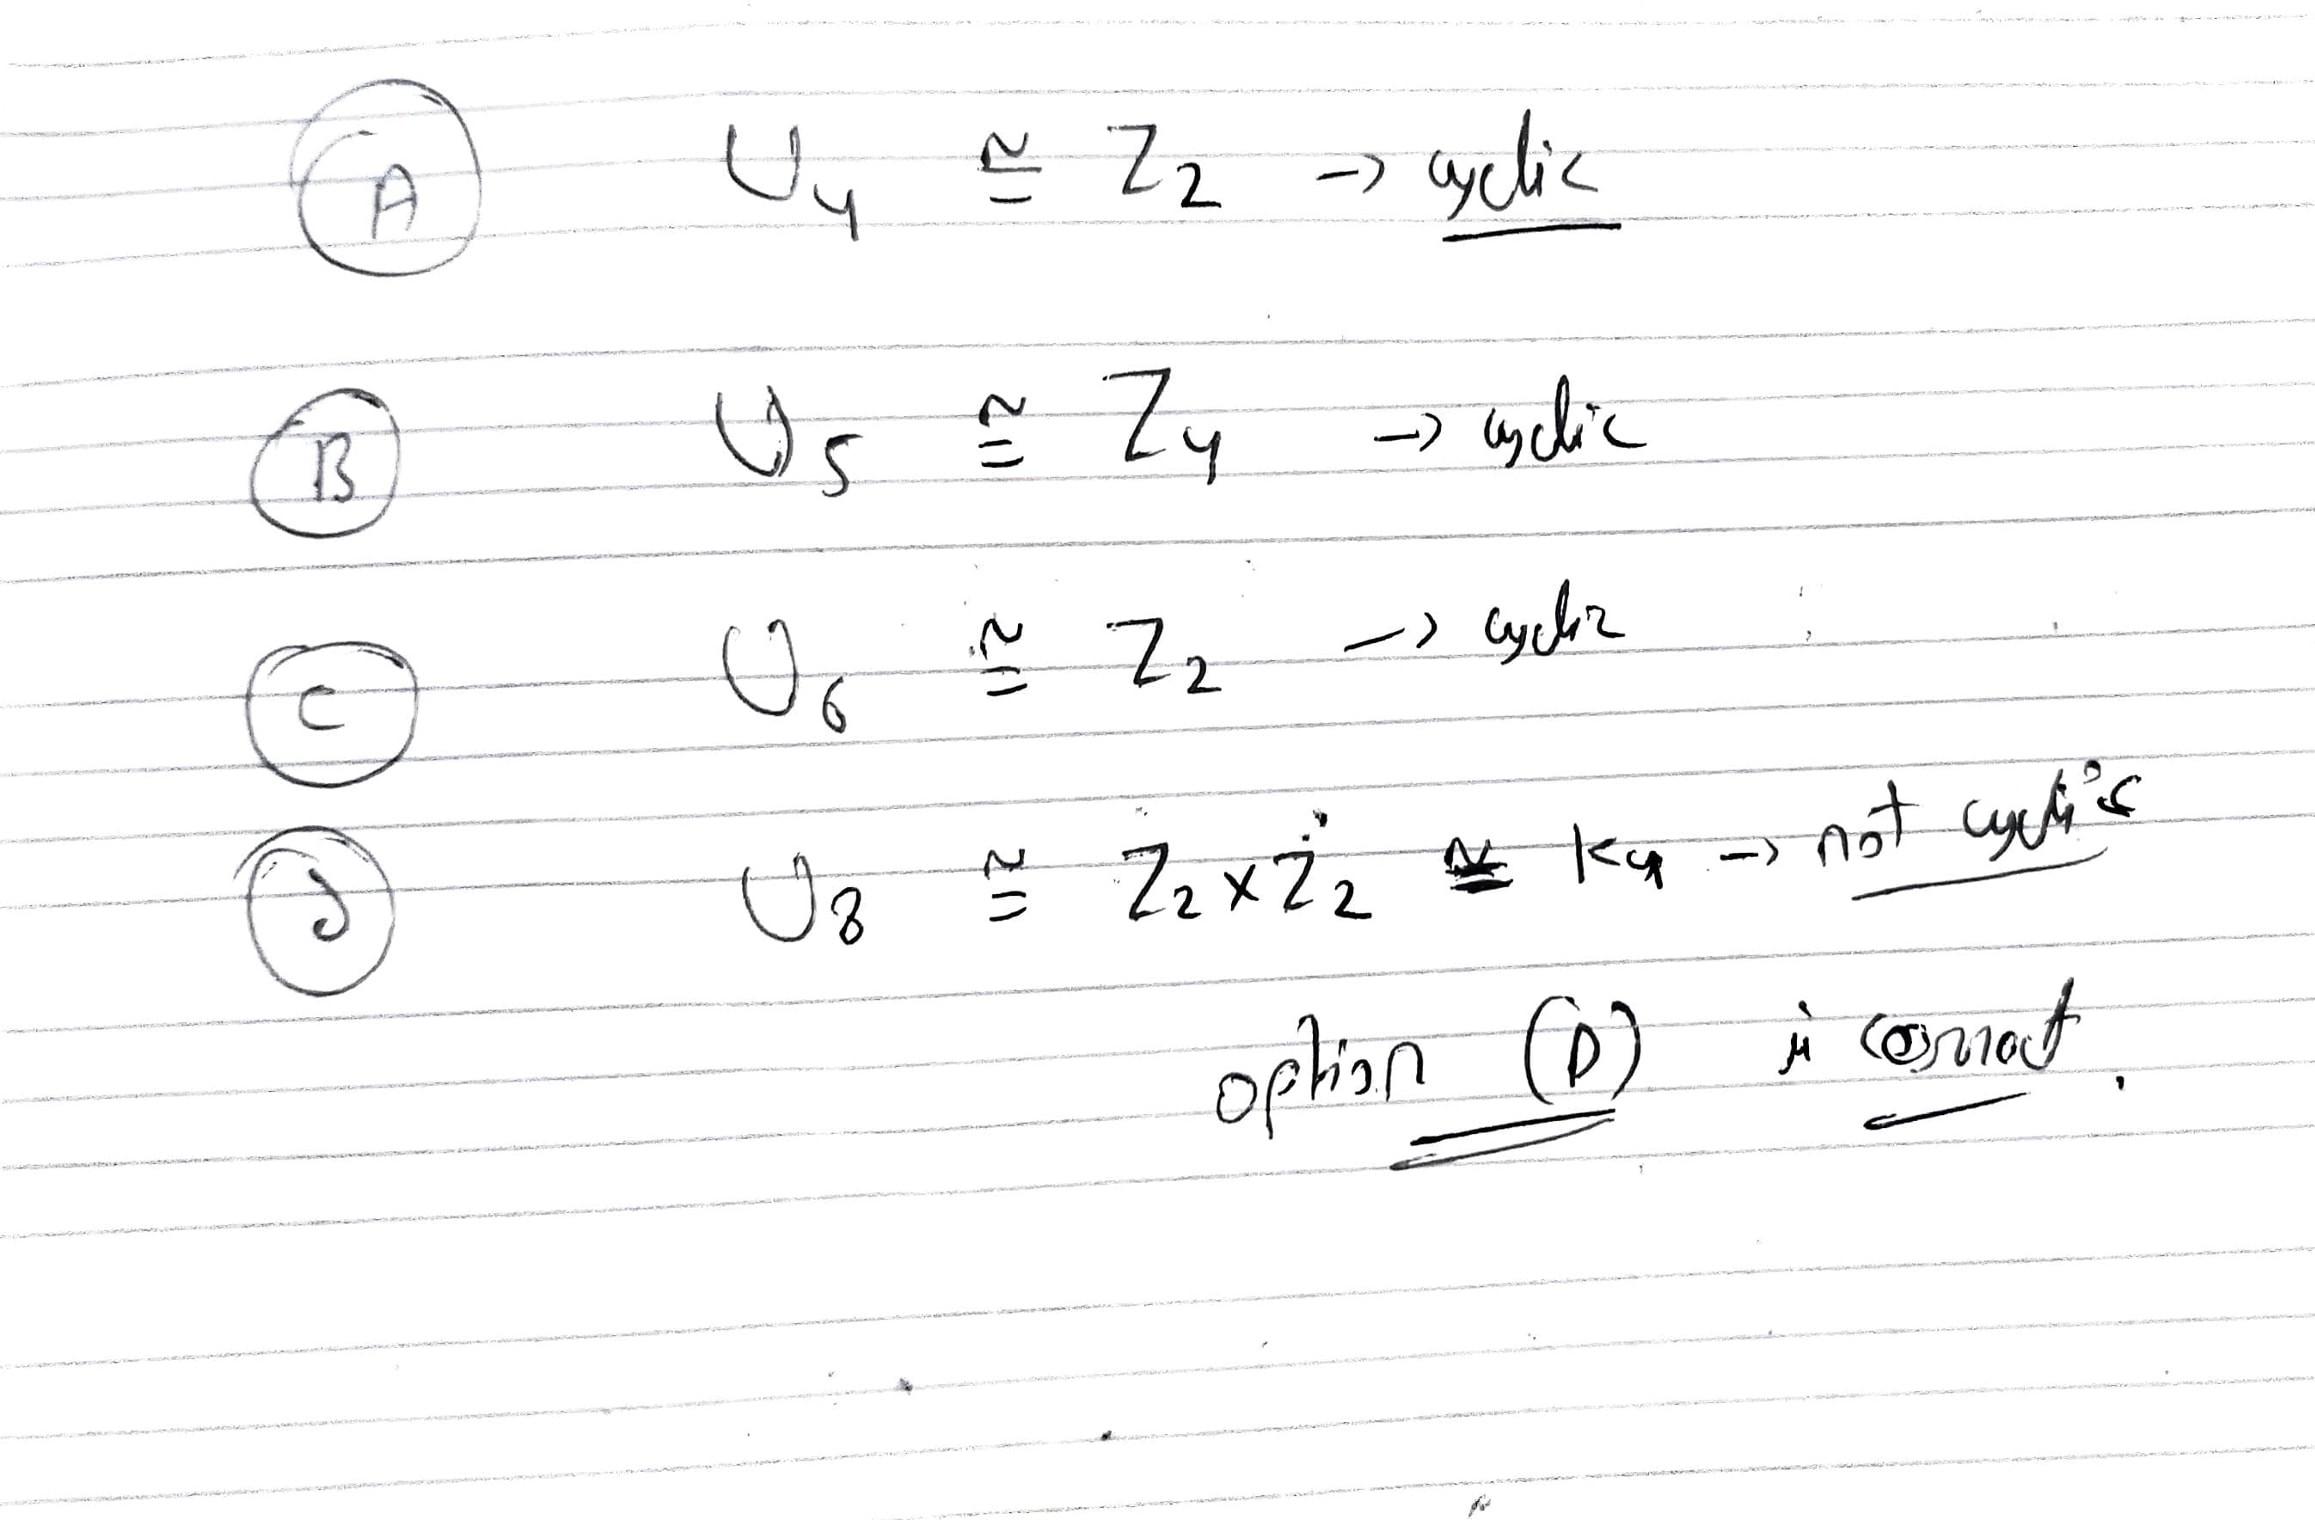 A U4 ≅ Z2 → cyclic
B U5 ≅ Z4 → cyclic
C U6 ≅ Z2 → cyclic
D U8 ≅ Z2 × Z2 ≅ K4 → not cyclic
option (D) is correct.